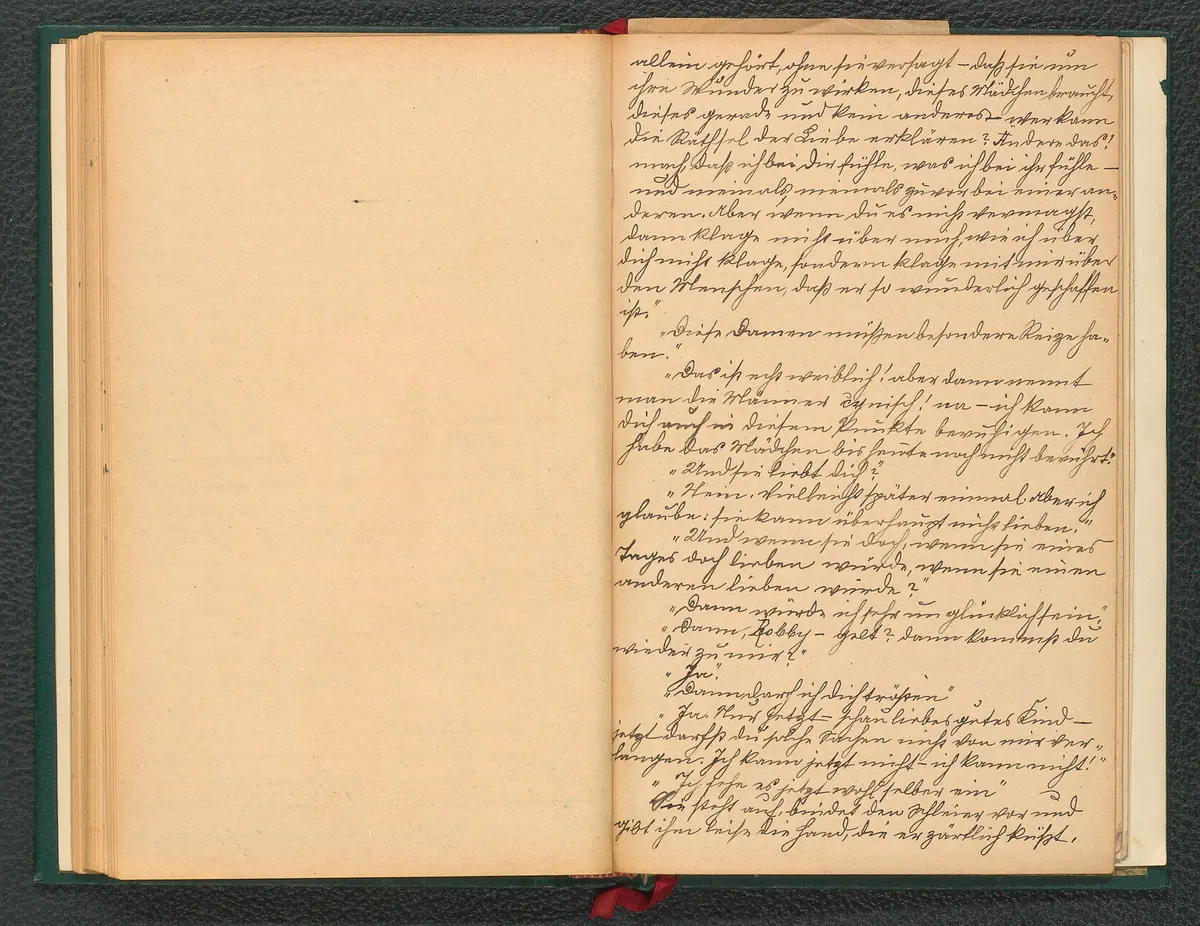 allein gehört, ohne sie versagt – daß sie um
ihre Wunder zu wirken, dieses Mädchen braucht,
dieses gerade und kein anderes – wer kann
die Räthsel der Liebe erklären? Ändere das!
mach, daß ich bei dir fühle, was ich bei ihr fühle –
und niemals, niemals zuvor bei einer an-
deren. Aber wenn du es nicht vermagst,
dann klage nicht über mich, wie ich über
dich nicht klage, sondern klage mit mir über
den Menschen, daß er so wunderlich geschaffen
ist."
„Diese Damen müßen besondere Reize ha-
ben."
„Das ist echt weiblich! aber dann nennt
man die Männer cynisch! na – ich kann
dich auch in diesem Punkte beruhigen. Ich
habe das Mädchen bis heute noch nicht berührt."
„Und sie liebt dich?"
„Nein. Vielleicht später einmal. Aber ich
glaube: sie kann überhaupt nicht lieben."
„Und wenn sie doch, wenn sie eines
Tages doch lieben würde, wenn sie einen
anderen lieben würde?"
„Dann würde ich sehr unglücklich sein."
„Dann, Bobby – gelt? dann kommst du
wieder zu mir?"
„Ja."
„Dann darf ich dich trösten"
„Ja. Nur jetzt – schau liebes gutes Kind –
jetzt darfst du solche Sachen nicht von mir ver-
langen. Ich kann jetzt nicht – ich kann nicht!"
„Ich sehe es jetzt wohl selber ein"
Sie steht auf, bindet den Schleier vor und
gibt ihm leise die Hand, die er zärtlich küßt.